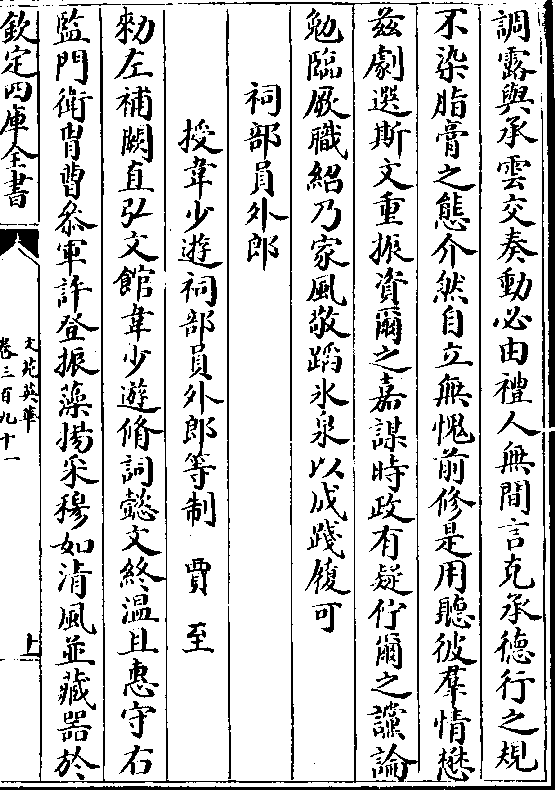 調露與承雲交奏動必由禮人無間言克承德行之規
不染脂膏之態介然自立無愧前修是用聽彼羣情懋
兹劇選斯文重振資爾之嘉謀時政有疑佇爾之讜論
勉臨厥職紹乃家風敬蹈氷泉以成踐履可
祠部員外郎
授韋少遊祠部員外郎等制　賈至
勅左補闕直弘文館韋少遊脩詞懿文終温且惠守右
監門衛胄曹叅軍許登振藻揚采穆如清風並藏器於
欽定四庫全書
文苑英華
卷三百九十一
上